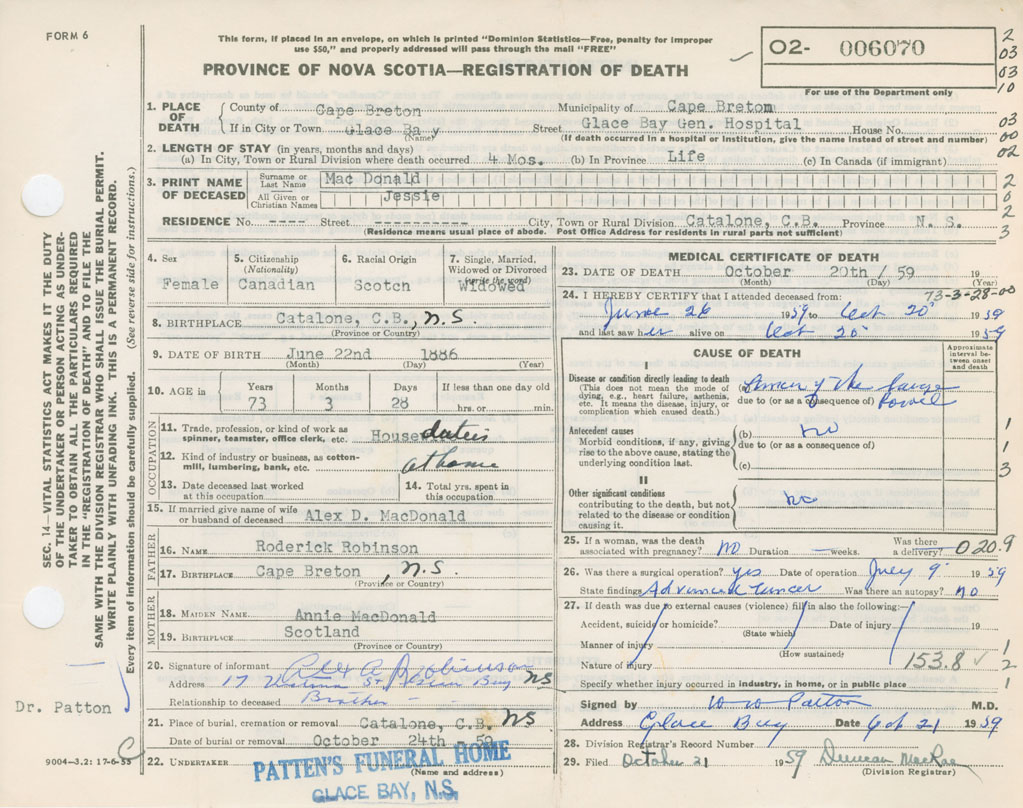 FORM 6
This form, if placed in an envelope, on which is printed "Dominion Statistics—Free, penalty for improper
use $50," and properly addressed will pass through the mail "FREE"
PROVINCE OF NOVA SCOTIA—REGISTRATION OF DEATH
02- 006070
For use of the Department only
2
03
03
10
03
00
02
2
0
2
3
1. PLACE OF DEATH County of Cape Breton Municipality of Cape Breton
If in City or Town Glace Bay (Name) Street Glace Bay Gen. Hospital House No.
(If death occurred in a hospital or institution, give the name instead of street and number)
2. LENGTH OF STAY (in years, months and days)
(a) In City, Town or Rural Division where death occurred 4 Mos. (b) In Province Life (c) In Canada (if immigrant)
3. PRINT NAME OF DECEASED Surname or Last Name Mac Donald
All Given or Christian Names Jessie
RESIDENCE No. ---- Street ----------- City, Town or Rural Division Catalone, C.B. Province N. S.
(Residence means usual place of abode. Post Office Address for residents in rural parts not sufficient)
4. Sex Female
5. Citizenship (Nationality) Canadian
6. Racial Origin Scotch
7. Single, Married, Widowed or Divorced (write the word) Widowed
8. BIRTHPLACE Catalone, C.B., N.S.
(Province or Country)
9. DATE OF BIRTH June 22nd 1886
(Month) (Day) (Year)
10. AGE in Years Months Days If less than one day old
73 3 28 hrs. or min.
OCCUPATION
11. Trade, profession, or kind of work as
spinner, teamster, office clerk, etc. House duties
12. Kind of industry or business, as cotton-
mill, lumbering, bank, etc. at home
13. Date deceased last worked
at this occupation
14. Total yrs. spent in
this occupation
15. If married give name of wife
or husband of deceased Alex D. MacDonald
FATHER
16. NAME Roderick Robinson
17. BIRTHPLACE Cape Breton, N.S.
(Province or Country)
MOTHER
18. MAIDEN NAME Annie MacDonald
19. BIRTHPLACE Scotland
(Province or Country)
20. Signature of informant Alex A Robinson
Address 17 St Bay NS
Relationship to deceased Brother
21. Place of burial, cremation or removal Catalone, C.B. NS
Date of burial or removal October 24th 59
22. UNDERTAKER PATTEN'S FUNERAL HOME
(Name and address)
GLACE BAY, N.S.
MEDICAL CERTIFICATE OF DEATH
23. DATE OF DEATH October 20th / 59 19
(Month) (Day) (Year)
73-3-28-00
24. I HEREBY CERTIFY that I attended deceased from:
June 26 1959 to Oct 20 1959
and last saw her alive on Oct 20 1959
CAUSE OF DEATH
Approximate interval between onset and death
I
Disease or condition directly leading to death
(This does not mean the mode of
dying, e.g., heart failure, asthenia,
etc. It means the disease, injury, or
complication which caused death.)
(a) of the large
due to (or as a consequence of) Bowel
Antecedent causes
Morbid conditions, if any, giving
rise to the above cause, stating the
underlying condition last.
(b) no
due to (or as a consequence of)
(c)
1
1
3
II
Other significant conditions
contributing to the death, but not
related to the disease or condition
causing it.
no
25. If a woman, was the death
associated with pregnancy? no Duration — weeks. Was there a delivery? 020.9
26. Was there a surgical operation? yes Date of operation July 9 1959
State findings Advanced Cancer Was there an autopsy? no
27. If death was due to external causes (violence) fill in also the following:—
Accident, suicide or homicide? Date of injury 19
(State which)
Manner of injury 1
(How sustained)
Nature of injury 153.8 ✓ 2
Specify whether injury occurred in industry, in home, or in public place 1
Signed by W W Patton M.D.
Address Glace Bay Date Oct 21 1959
28. Division Registrar's Record Number
29. Filed October 21 1959 Duncan MacRae
(Division Registrar)
SEC. 14—VITAL STATISTICS ACT MAKES IT THE DUTY
OF THE UNDERTAKER OR PERSON ACTING AS UNDER-
TAKER TO OBTAIN ALL THE PARTICULARS REQUIRED
IN THE "REGISTRATION OF DEATH" AND TO FILE THE
SAME WITH THE DIVISION REGISTRAR WHO SHALL ISSUE THE BURIAL PERMIT.
WRITE PLAINLY WITH UNFADING INK. THIS IS A PERMANENT RECORD.
Every item of information should be carefully supplied. (See reverse side for instructions.)
Dr. Patton
9004—3.2: 17-6-55